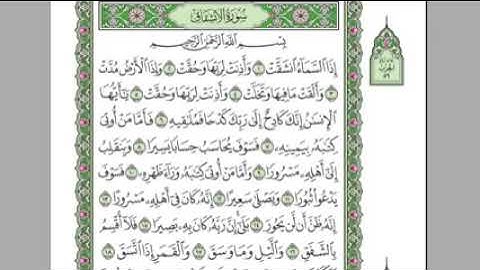 سُورَةُ الانشِقَاقِ
بِسْمِ ٱللَّهِ ٱلرَّحْمَٰنِ ٱلرَّحِيمِ
إِذَا ٱلسَّمَآءُ ٱنشَقَّتْ ١ وَأَذِنَتْ لِرَبِّهَا وَحُقَّتْ ٢ وَإِذَا ٱلْأَرْضُ مُدَّتْ
٣ وَأَلْقَتْ مَا فِيهَا وَتَخَلَّتْ ٤ وَأَذِنَتْ لِرَبِّهَا وَحُقَّتْ ٥ يَٰٓأَيُّهَا
ٱلْإِنسَٰنُ إِنَّكَ كَادِحٌ إِلَىٰ رَبِّكَ كَدْحًا فَمُلَٰقِيهِ ٦ فَأَمَّا مَنْ أُوتِىَ
كِتَٰبَهُۥ بِيَمِينِهِۦ ٧ فَسَوْفَ يُحَاسَبُ حِسَابًا يَسِيرًا ٨ وَيَنقَلِبُ
إِلَىٰٓ أَهْلِهِۦ مَسْرُورًا ٩ وَأَمَّا مَنْ أُوتِىَ كِتَٰبَهُۥ وَرَآءَ ظَهْرِهِۦ ١٠ فَسَوْفَ
يَدْعُوا۟ ثُبُورًا ١١ وَيَصْلَىٰ سَعِيرًا ١٢ إِنَّهُۥ كَانَ فِىٓ أَهْلِهِۦ مَسْرُورًا ١٣
إِنَّهُۥ ظَنَّ أَن لَّن يَحُورَ ١٤ بَلَىٰٓ إِنَّ رَبَّهُۥ كَانَ بِهِۦ بَصِيرًا ١٥ فَلَآ أُقْسِمُ
بِٱلشَّفَقِ ١٦ وَٱلَّيْلِ وَمَا وَسَقَ ١٧ وَٱلْقَمَرِ إِذَا ٱتَّسَقَ ١٨